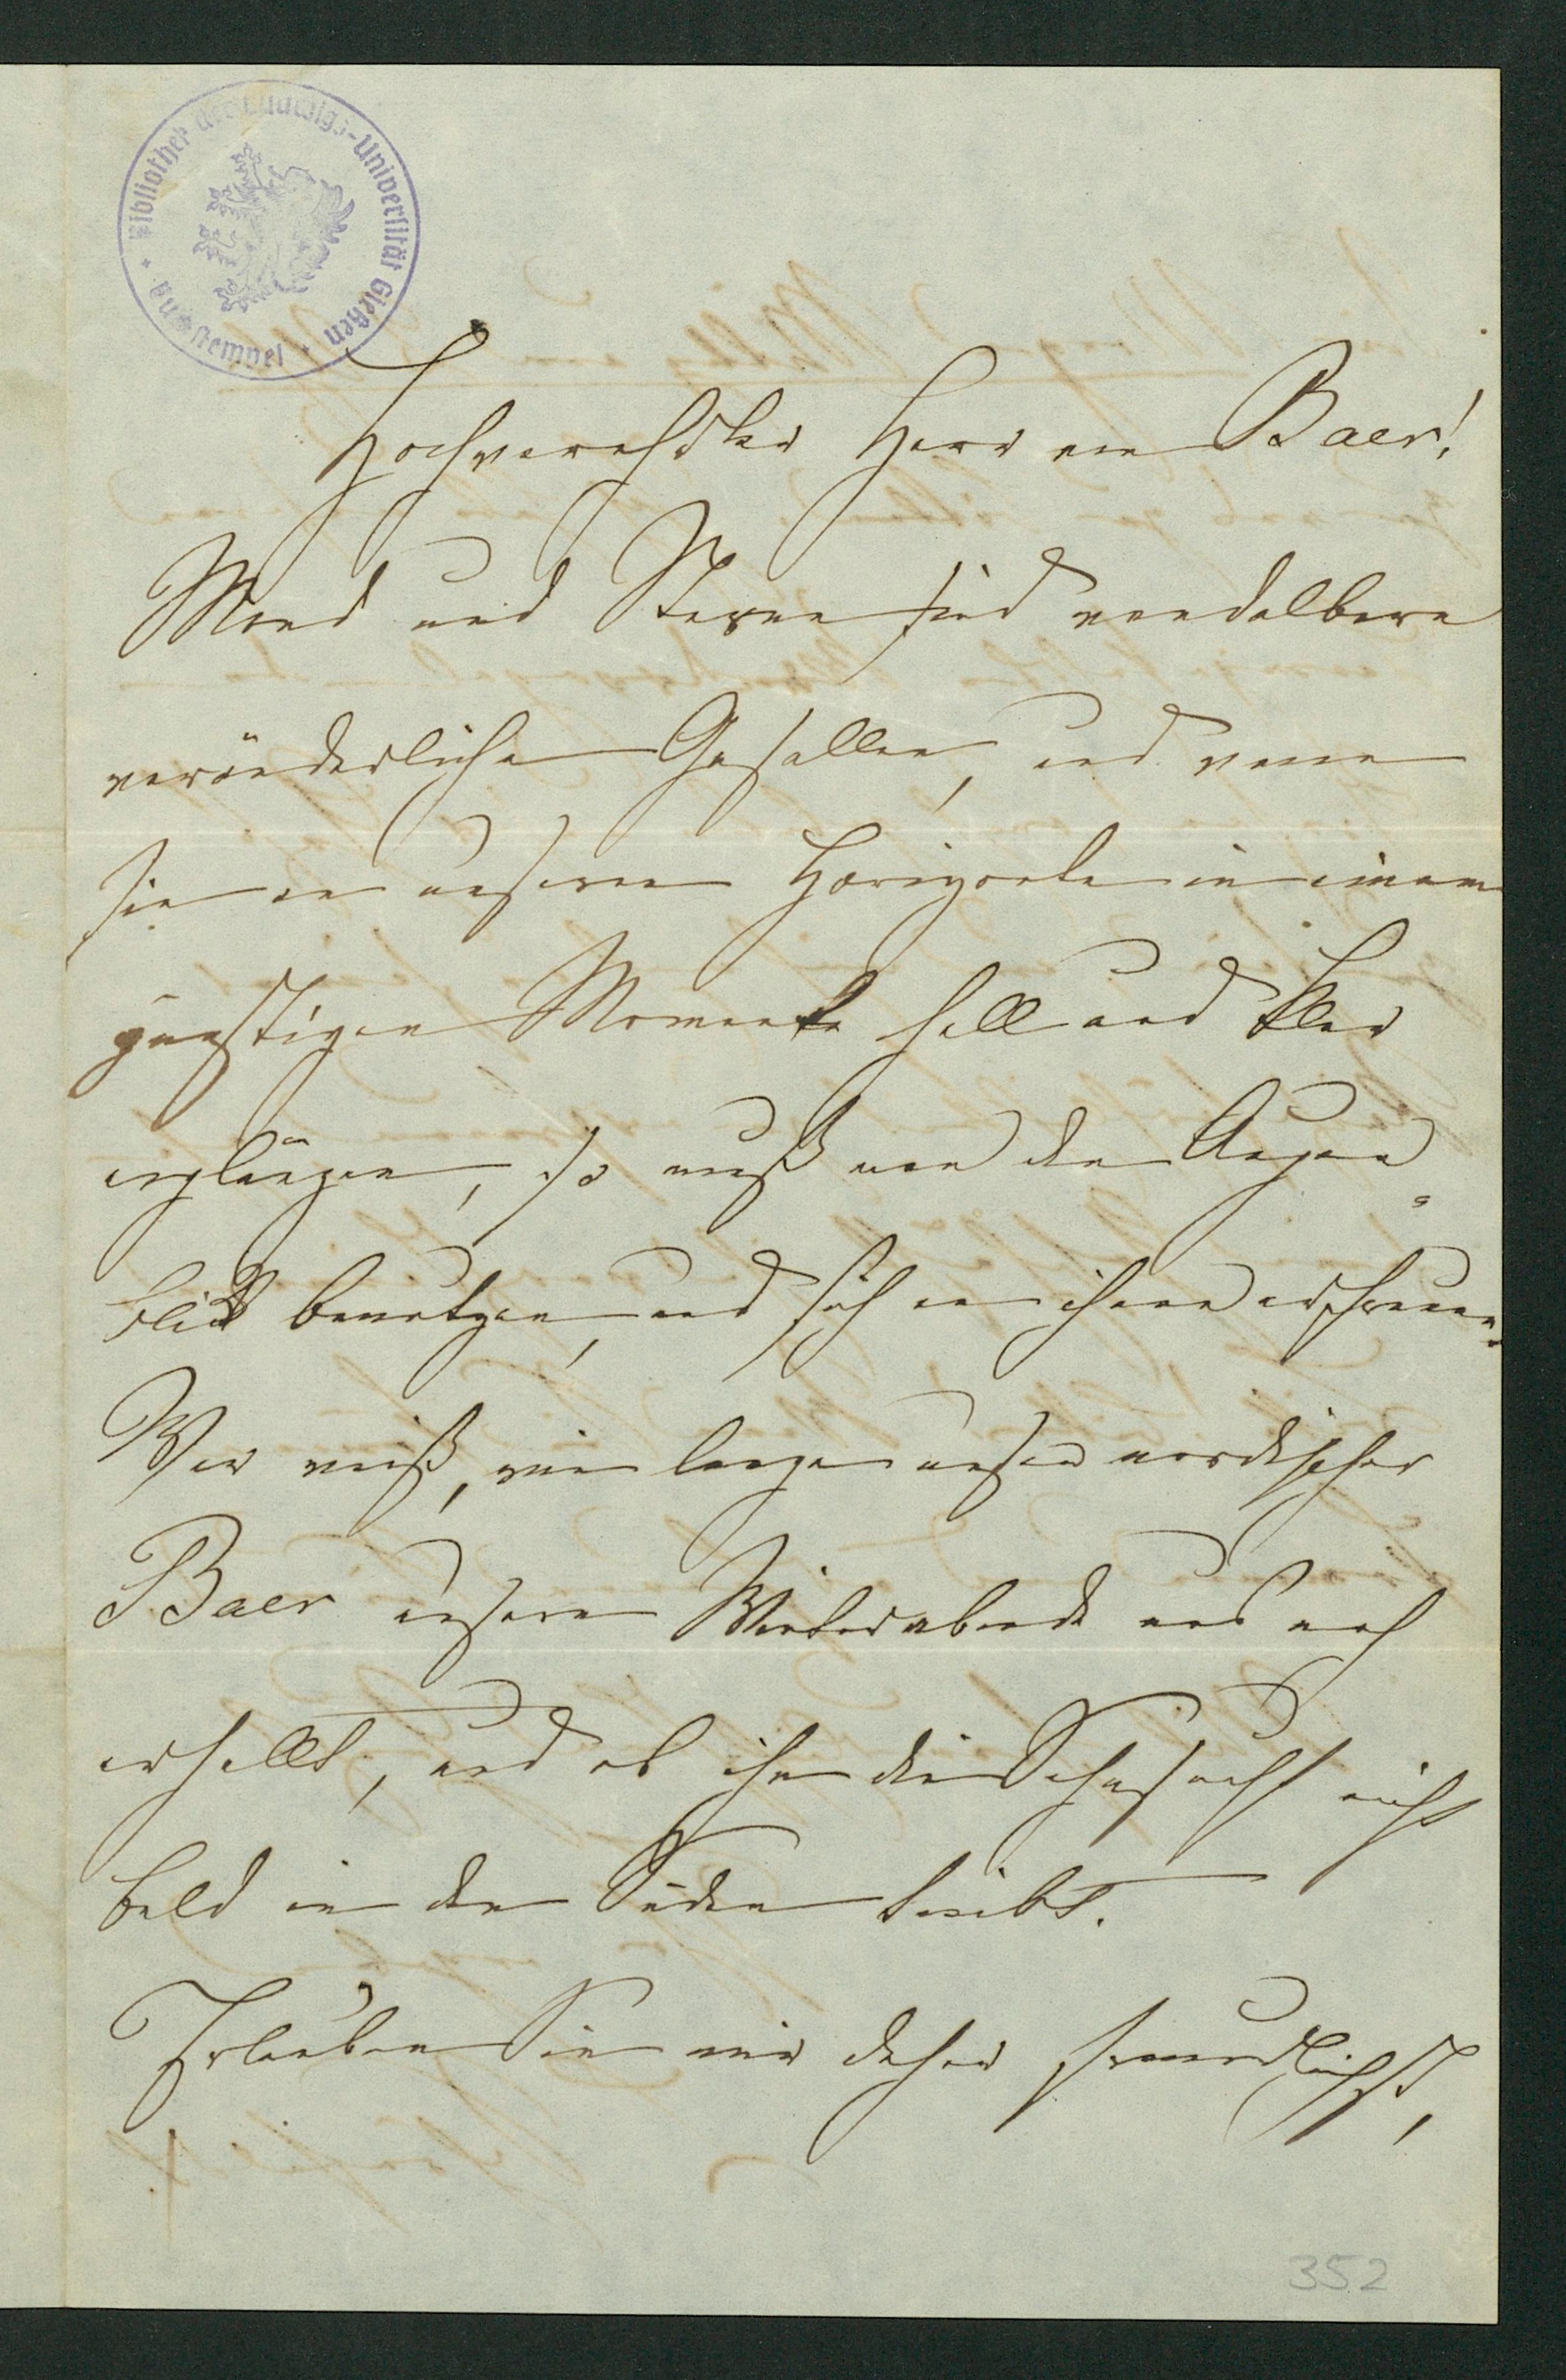 Bibliothek der Ludwigs-Universität Gießen
Hochverehrter Herr von Baer!
Mond und Sterne sind wandelbare
veränderliche Gesellen, und wenn
sie an unserem Horizonte in einem
günstigen Momente hell und klar
erglänzen, so muß man den Augen¬
blick benutzen, und sich an ihnen erfreuen.
Wer weiß, wie lange unser nordischer
Baer unsere Winterabende uns noch
erhellt, und ob ihn die Sehnsucht nicht
bald in den Süden treibt.
Erlauben Sie mir daher freundlichst,
352